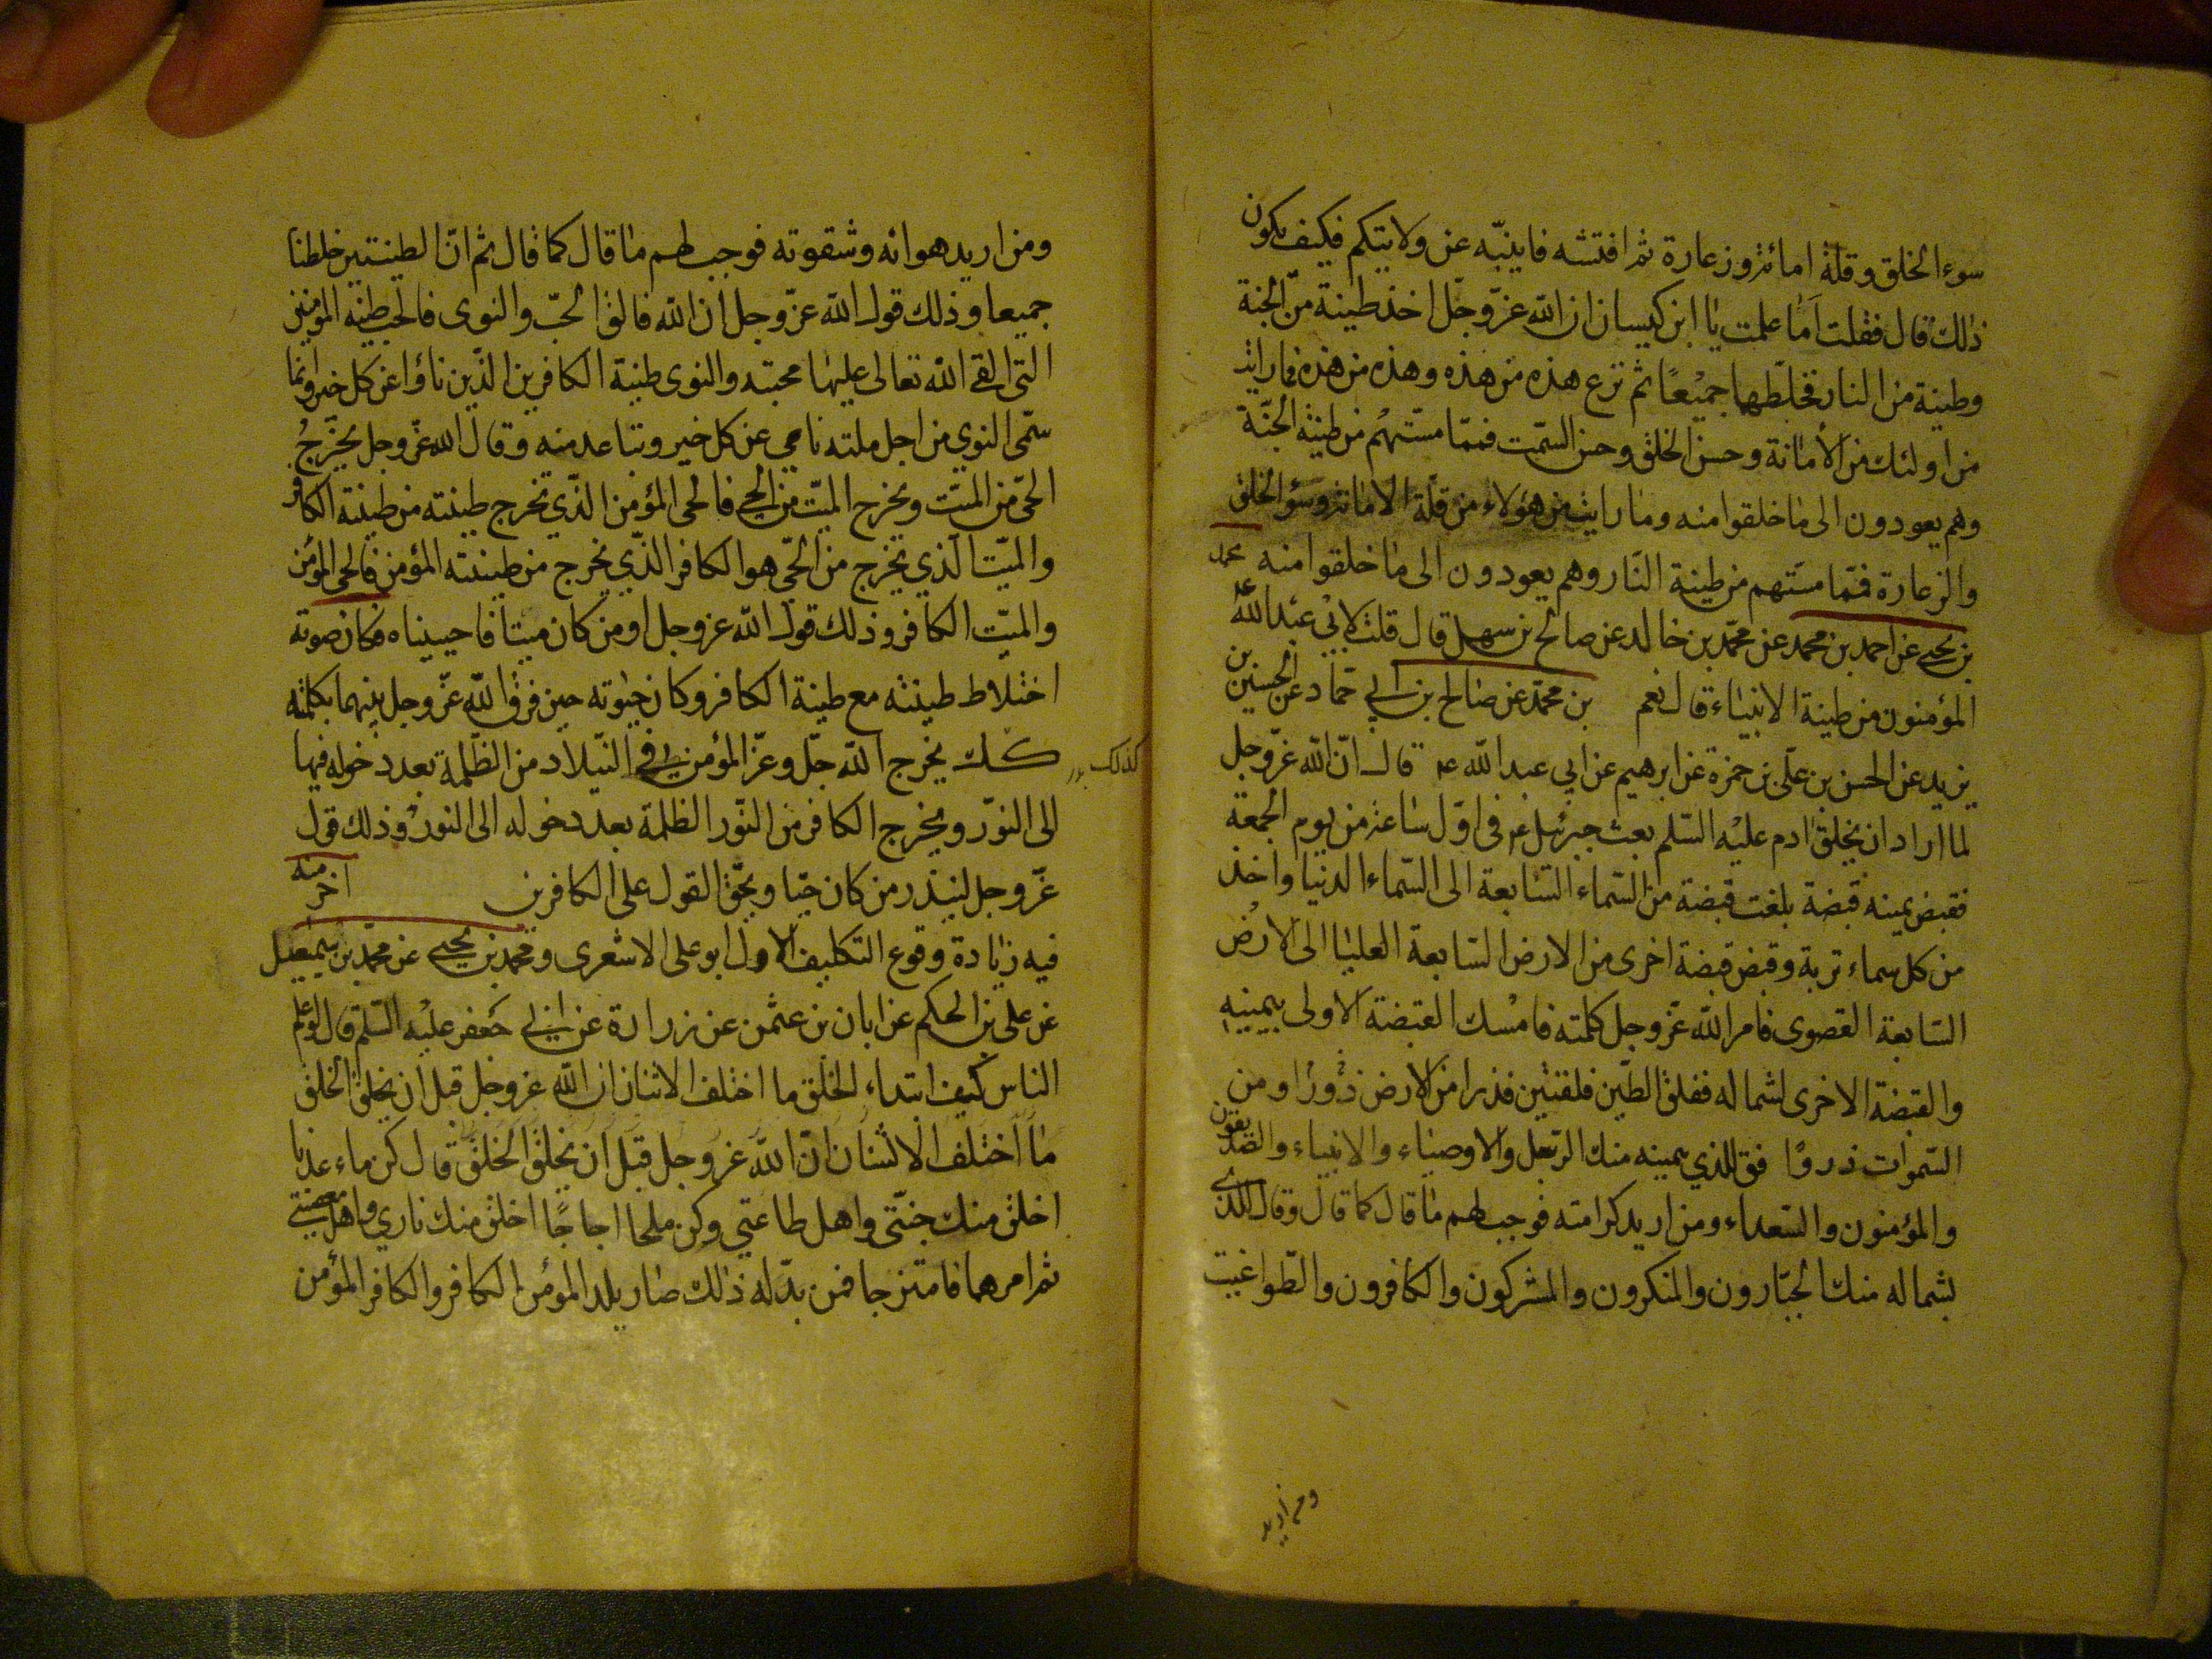 سوء الخلق وقلة امانة وزعارة ثم افتشه فاينبه عن ولايتكم فكيف يكون
ذلك قال فقلت اما علمت يا ابن كيسان ان الله عزّ وجلّ اخذ طينة من الجنة
وطينة من النار فخلطهما جميعًا ثم نزع هذه من هذه وهذه من هذه فما رايت
من اولئك من الأمانة وحسن الخلق وحسن السّمت فممّا مسّتهم من طينة الجنّة
وهم يعودون الى ما خلقوا منه وما رايت من هؤلاء من قلة الامانة وسوء الخلق
والزعارة فممّا مسّتهم من طينة النّار وهم يعودون الى ما خلقوا منه محمد
بن يحيى عن احمد بن محمد عن محمّد بن خالد عن صالح بن سهل قال قلت لابي عبد الله ع
المؤمنون من طينة الانبياء قال نعم بن محمّد عن صالح بن ابي حمّاد عن الحسين بن
يزيد عن الحسن بن علّي بن حمزة عن ابرهيم عن ابي عبد الله ع قال انّ الله عزّ وجل
لما اراد ان يخلق ادم عليه السّلم بعث جبرئيل ع في اوّل ساعة من يوم الجمعة
فقبض بيمينه قبضة بلغت قبضة من السّماء السّابعة الى السّماء الدنيا واخذ
من كل سماء تربة وقبض قبضة اخرى من الارض السّابعة العليا الى الارض
السّابعة القصوى فامر الله عزّ وجل كلمته فامسك القبضة الاولى بيمينه
والقبضة الاخرى لشماله ففلق الطّين فلقتين فذرا من الارض ذروًا ومن
السّموات ذروًا فق للذي بيمينه منك الرّسل والاوصياء والانبياء والصّديقون
والمؤمنون والسّعداء ومن اريد كرامته فوجب لهم ما قال كما قال وقال للذي
بشماله منك الجبّارون والمنكرون والمشركون والكافرون والطّواغيت
ومن اريد
ومن اريد هوانه وشقوته فوجب لهم ما قال كما قال ثم انّ الطينتين خلطتا
جميعا وذلك قول الله عزّ وجل ان الله فالق الحبّ والنوى فالحبّ طينة المؤمنين
التي القى الله تعالى عليها محبته والنوى طينة الكافرين الّذين ناؤا عن كل خير وانما
سمّى النوى من اجل ملته نامى عن كل خير وتباعد منه وقال الله عزّ وجل يخرجُ
الحيّ من الميّت ويخرج الميّت من الحي فالحي المؤمن الّذي تخرج طينته من طينة الكافر
والميّت الّذي يخرج من الحيّ هو الكافر الّذي يخرج من طيننته المؤمن فالحي المؤمن
والميّت الكافر وذلك قول الله عز وجل اومن كان ميتا فاحييناه فكان موته
اختلاط طينته مع طينة الكافر وكان حيوته حين فرق الله عزّ وجل بينهما بكلمته
كك يخرج الله جلّ وعزّ المؤمن في الميلاد من الظّلمة بعد دخوله فيها
كذلك
الى النّور ويخرج الكافر من النّور الظلمة بعد دخوله الى النور وذلك قول
عزّ وجل لينذر من كان حيّا ويحقّ القول على الكافرين اخر منه
فيه زيادة وقوع التكليف الاول ابو على الاشعرى ومحمد بن يحيى عن محمّد بن اسمعيل
عن على بن الحكم عن ابان بن عثمن عن زرارة عن ابي جعفر عليه السّلم قال لو علم
الناس كيف ابتداء الخلق ما اختلف الاثنان ان الله عز وجل قبل ان يخلق الخلق
ما اختلف الاثنان انّ الله عزّ وجل قبل ان يخلق الخلق قال كن ماء عذبا
اخلق منك جنّتي واهل طاعتي وكن ملحا اجاجًا اخلق منك ناري واهل معصيتي
ثم امرهما فامتزجا فمن بدّله ذلك صار يلد المؤمن الكافر والكافر المؤمن